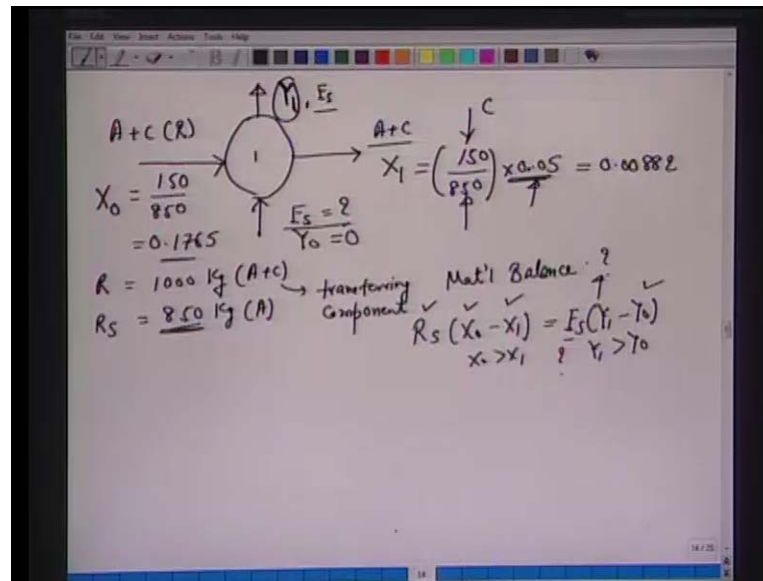 File Edit View Insert Actions Tools Help
Y₁, Es
A + C (R)
1
A+C
C
X₁ = (150/850) × 0.05 = 0.00882
X₀ = 150/850
= 0.1765
Es = ?
Y₀ = 0
R = 1000 Kg (A+C)
Rs = 850 Kg (A)
transferring
Component
Mat'l Balance ?
Rs (X₀ - X₁) = Es (Y₁ - Y₀)
X₀ > X₁ ? Y₁ > Y₀
14 / 25
14